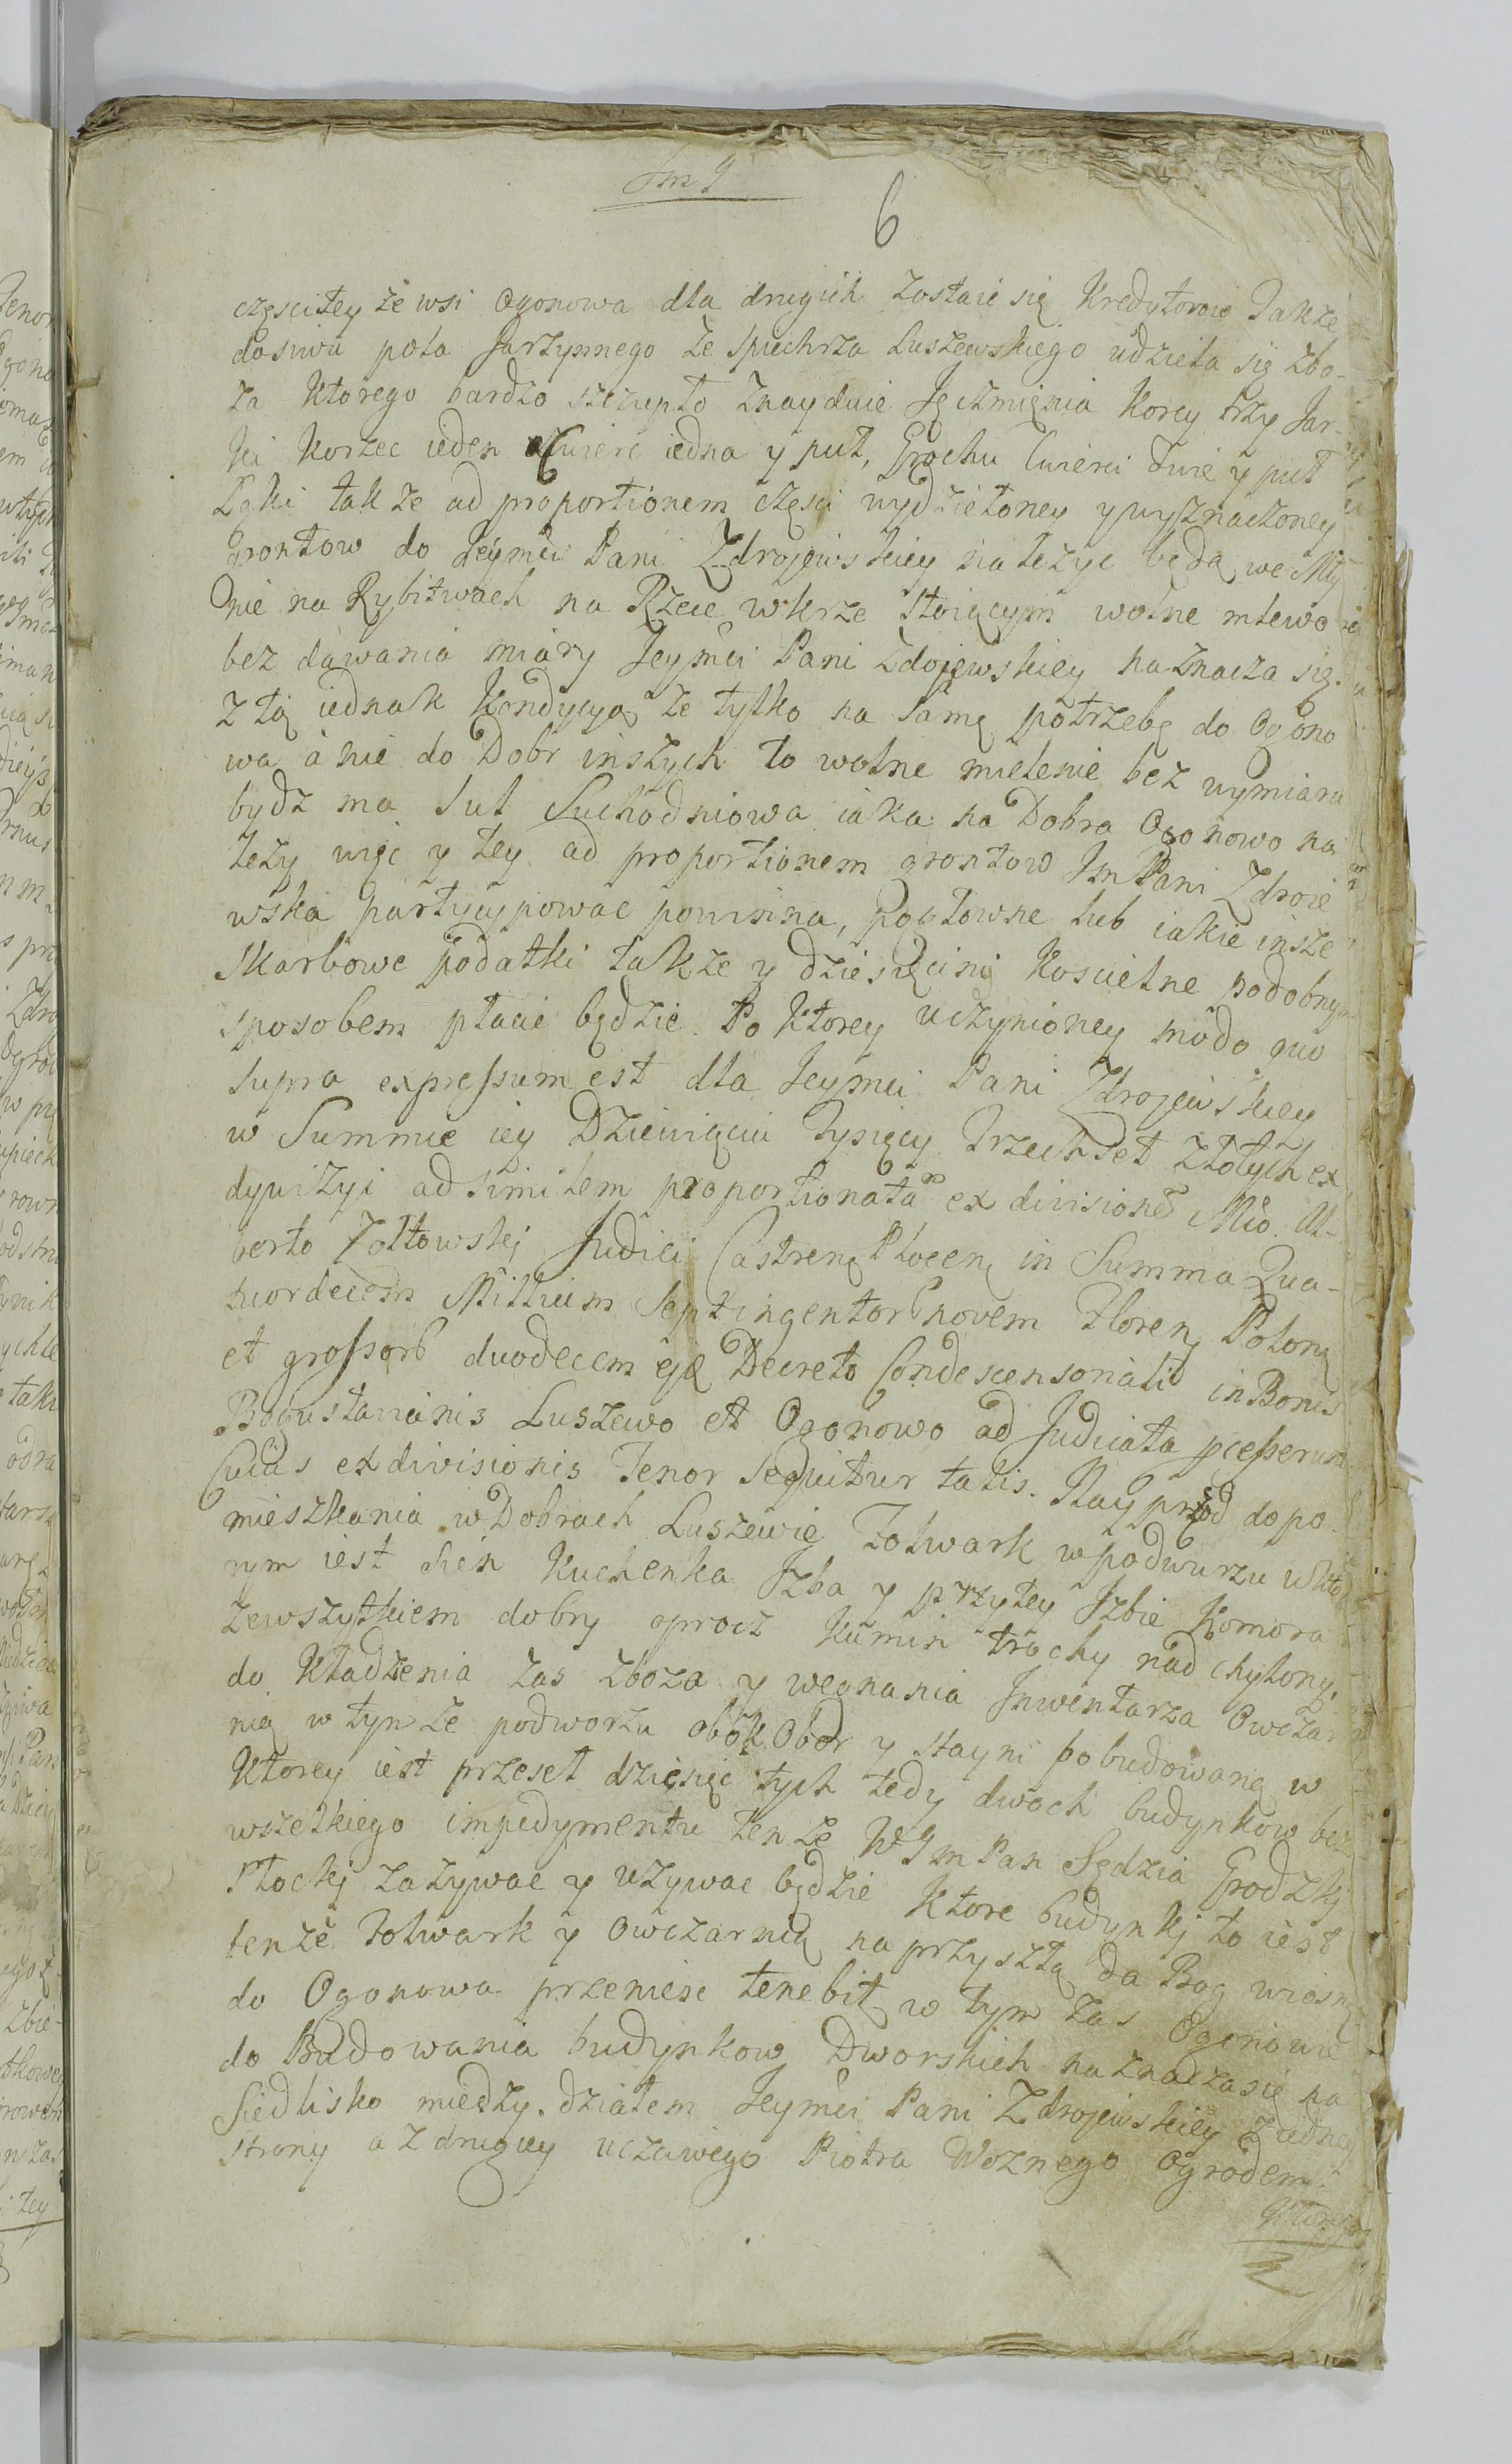 6
częscitey że wsi Ogonowa dla drugich zostaie się Kredytorow Takze
do siwu pola Jarzynnego ze Spichrza Luszewskiego udziela się zbo-
za Ktorego bardzo szczupło znayduie Jęczmięnia Korcy trzy Jar-
ki Korzec ieden Cwierc iedna y puł, Grochu Cwierci dwie y puł
Łąki takze ad proportionem częsci wydzieloney y wyznaczoney
Grontow do Jeymci Pani Zdrojewskiey nalezyc będą, we Mły
nie na Rybitwach na Rzece Wkrze stoiącym wolne mlewo
bez dawania miary Jeymci Pani Zdojewskiey naznacza się.
z tą iednak Kondycyą ze tylko na samę potrzebę do Ogono
wa a nie do Dobr inszych to wolne mielenie bez wymiaru
bydz ma Sul Suchodniowa iaka na Dobra Ogonowo na
lezy więc y tey ad proportionem grontow Jm Pani Zdroie
wska partycypowac powinna, Pogłowne lub iakie insze
Skarbowe podatki takze y dziesięcinę Koscielne podobnym
sposobem płacic będzie. Po Ktorey uczynioney modo quo
supra expressum est dla Jeymci Pani Zdrojewskiey
w Summie iey Dziewięciu Tysięcy Trzechset Złotych ex
dywizyi ad similem proportionatam ex divisione Mco. Al-
berto Zołtowskj Judici Castren Plocen in Summa Qua-
tuordecem Millium Septingentor novem Floren Polon
et grossor duodecem Decreto Condescensoriali in Bonis
Bogustavianis Luszewo et Ogonowo ad Judicata
Cuius exdivisionis Tenor sequitur talis. Nayprzod dopo
mieszkania w Dobrach Luszewie Folwark w podwurzu wkto
rym iest Sien Kuchenka Jzba y przytey Jzbie Komora
zewszytkiem dobry oprocz Kumin trochy nad chylony,
do Kładzenia zas zboza y wegnania Jnwentarza Owczar
nią w tymze podworzu obok Obor y stayni pobudowaną w
Ktorey iest przeseł dziesięc tych tedy dwoch budynkow bez
wszelkiego impedymentu tenze WJm Pan Sędzia Grodzkj
Płockj zazywac y uzywac będzie Ktore budynkj to iest
tenze Folwark y Owczarnią na przyszłą da Bog wiosnę
do Ogonowa przeniesc tenebit, w tym zas Ogonowie
do Budowania budynkow Dworskich naznaczasię na
Siedlisko miedzy działem Jeymci Pani Zdrojewskiey zjedney
strony a z drugiey uczciwego Piotra Woznego Ogrodem.